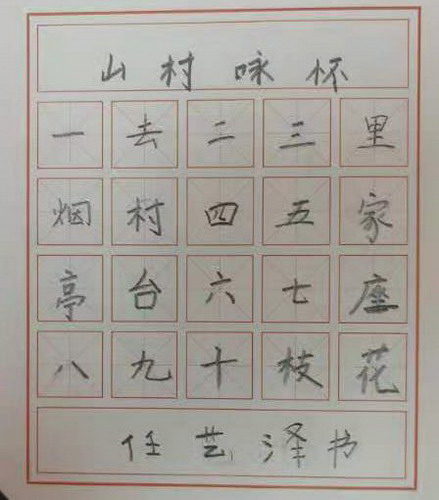 山村咏怀
一去二三里
烟村四五家
亭台六七座
八九十枝花
任艺泽书